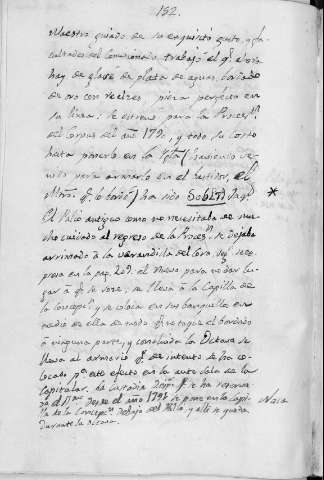 132.
Maestro guiado de su exquisito gusto, y fa-
cultades del Comisionado trabajó el qᵉ ahora
hay de glase de plata de aguas, bordado
de oro con realzes, pieza perfecta en
su linea. Se estrenó para la Proces.ⁿ
del Corpus del año 179 , y todo su costo
hasta ponerlo en la Ygla (haciendo ve-
nido para armarlo en el bastidor, el
Mtro. qᵉ lo bordó) ha sido
El Palio antiguo como no necesitaba de mu-
cho cuidado al regreso de la Proces.ⁿ se dejaba
arrimado á la varandilla del Coro, segⁿ se ex-
presa en la pag. 209. el nuevo para no dar lu-
gar á qᵉ se roze, se lleva á la Capilla de
la Concepⁿ y se coloca en sus banquillos en
medio de ella de modo qᵉ no toque el bordado
á ninguna parte, y concluida la Octava se
lleva al armario qᵉ de intento se ha co-
locado pᵃ este efecto en la aula de la
Capitular. La Custodia despⁿ qᵉ se ha reserva-
do el Dⁿᵒ desde el año 179 se pone en la Capi- Nota
lla de la Concepⁿ debajo del Palio, y alli se queda
durante la octava.